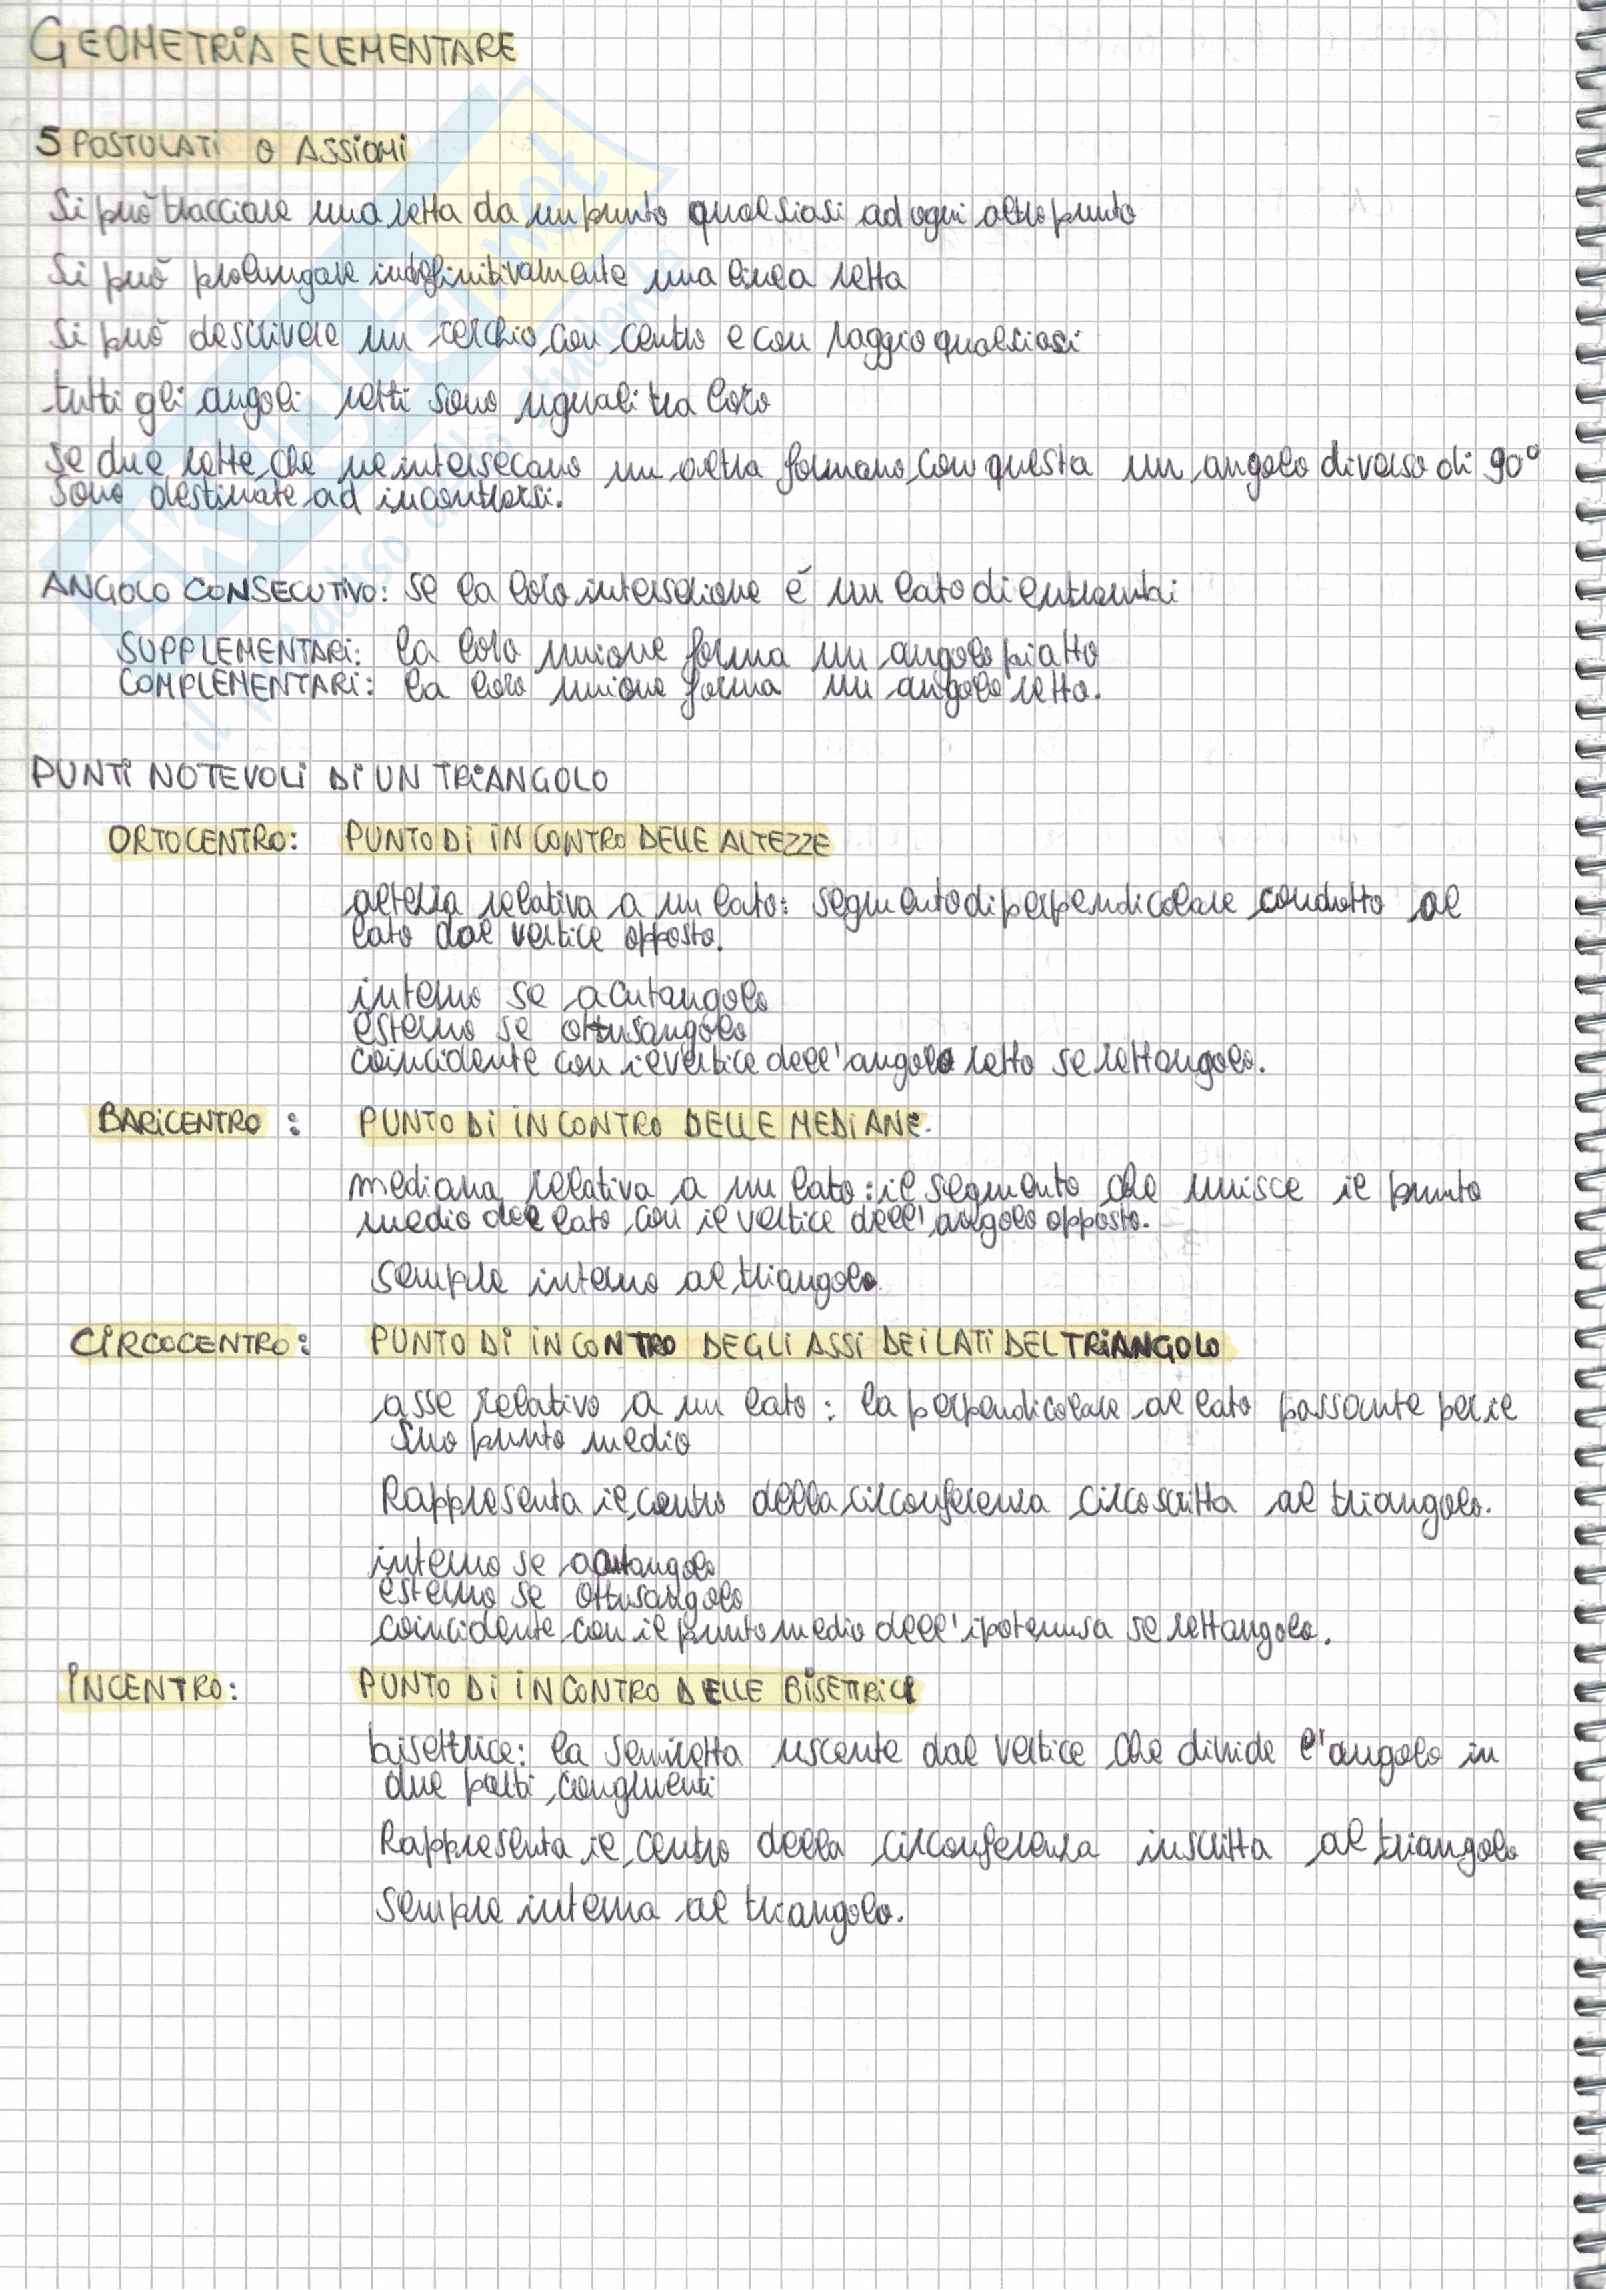 GEOMETRIA ELEMENTARE
5 POSTULATI O ASSIOMI
Si può tracciare una retta da un punto qualsiasi ad ogni altro punto
Si può prolungare indefinitivamente una linea retta
Si può descrivere un cerchio con centro e con raggio qualsiasi
tutti gli angoli retti sono uguali tra loro
se due rette che ne intersecano un altra formano con questa un angolo diverso di 90°
sono destinate ad incontrarsi.
ANGOLO CONSECUTIVO: se la loro intersezione è un lato di entrambi
SUPPLEMENTARI: la loro unione forma un angolo piatto
COMPLEMENTARI: la loro unione forma un angolo retto.
PUNTI NOTEVOLI DI UN TRIANGOLO
ORTOCENTRO: PUNTO DI INCONTRO DELLE ALTEZZE
altezza relativa a un lato: segmento di perpendicolare condotto al
lato dal vertice opposto.
interno se acutangolo
esterno se ottusangolo
coincidente con il vertice dell'angolo retto se rettangolo.
BARICENTRO: PUNTO DI INCONTRO DELLE MEDIANE.
mediana relativa a un lato: il segmento che unisce il punto
medio del lato con il vertice dell'angolo opposto.
sempre interno al triangolo.
CIRCOCENTRO: PUNTO DI INCONTRO DEGLI ASSI DEI LATI DEL TRIANGOLO
asse relativo a un lato: la perpendicolare al lato passante per il
suo punto medio
Rappresenta il centro della circonferenza circoscritta al triangolo.
interno se acutangolo
esterno se ottusangolo
coincidente con il punto medio dell'ipotenusa se rettangolo.
INCENTRO: PUNTO DI INCONTRO DELLE BISETTRICI
bisettrice: la semiretta uscente dal vertice che divide l'angolo in
due parti congruenti
Rappresenta il centro della circonferenza inscritta al triangolo
sempre interna al triangolo.
SKUOLA.net
il paradiso dello studente